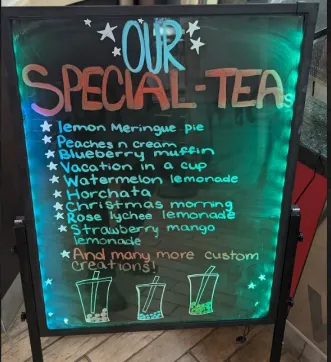 OUR
SPECIAL-TEAs
lemon Meringue pie
Peaches n cream
Blueberry muffin
Vacation in a cup
Watermelon lemonade
Horchata
Christmas morning
Rose lychee lemonade
Strawberry mango
lemonade
And many more custom
creations!